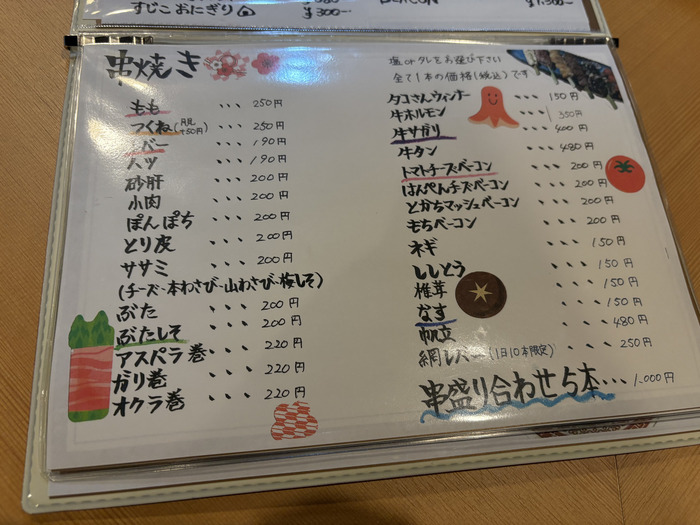 すじこおにぎり
¥300〜
¥1,300〜
串焼き
もも ・・・ 250円
つくね(月見+50円) ・・・ 250円
レバー ・・・ 190円
ハツ ・・・ 190円
砂肝 ・・・ 200円
小肉 ・・・ 200円
ぼんぽち ・・・ 200円
とり皮 ・・・ 200円
ササミ ・・・ 200円
(チーズ・本わさび・山わさび・梅しそ)
ぶた ・・・ 200円
ぶたしそ ・・・ 200円
アスパラ巻 ・・・ 220円
ガリ巻 ・・・ 220円
オクラ巻 ・・・ 220円
塩 or タレをお選び下さい
全て1本の価格(税込)です
タコさんウィンナー ・・・ 150円
牛ホルモン ・・・ 350円
牛サガリ ・・・ 400円
牛タン ・・・ 480円
トマトチーズベーコン ・・・ 200円
はんぺんチーズベーコン ・・・ 200円
とかちマッシュベーコン ・・・ 200円
もちベーコン ・・・ 200円
ネギ ・・・ 150円
ししとう ・・・ 150円
椎茸 ・・・ 150円
なす ・・・ 150円
帆立 ・・・ 480円
網レバー(1日10本限定) ・・・ 250円
串盛り合わせ5本・・・1,000円